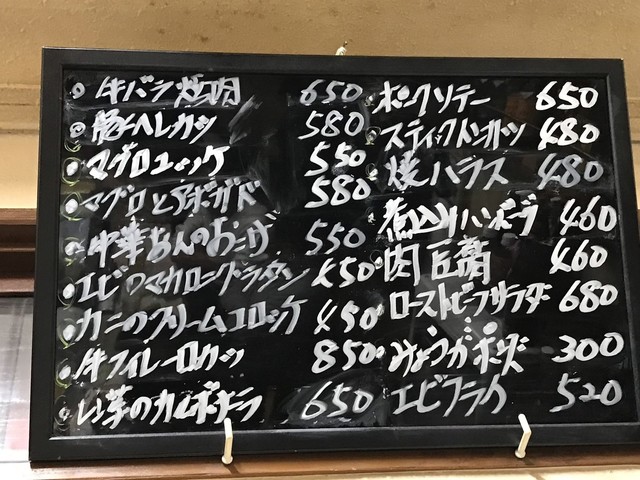 牛バラ焼肉 650
豚ヘレカツ 580
マグロユッケ 550
マグロとアボガド 580
中華あんのおこげ 550
エビのマカロニグラタン 450
カニのクリームコロッケ 450
牛フィレ一口カツ 850
里芋のカルボナーラ 650
ポークソテー 650
スティックトンカツ 480
焼ハラス 480
煮込ハンバーグ 460
肉豆腐 460
ローストビーフサラダ 680
みょうがポン酢 300
エビフライ 520